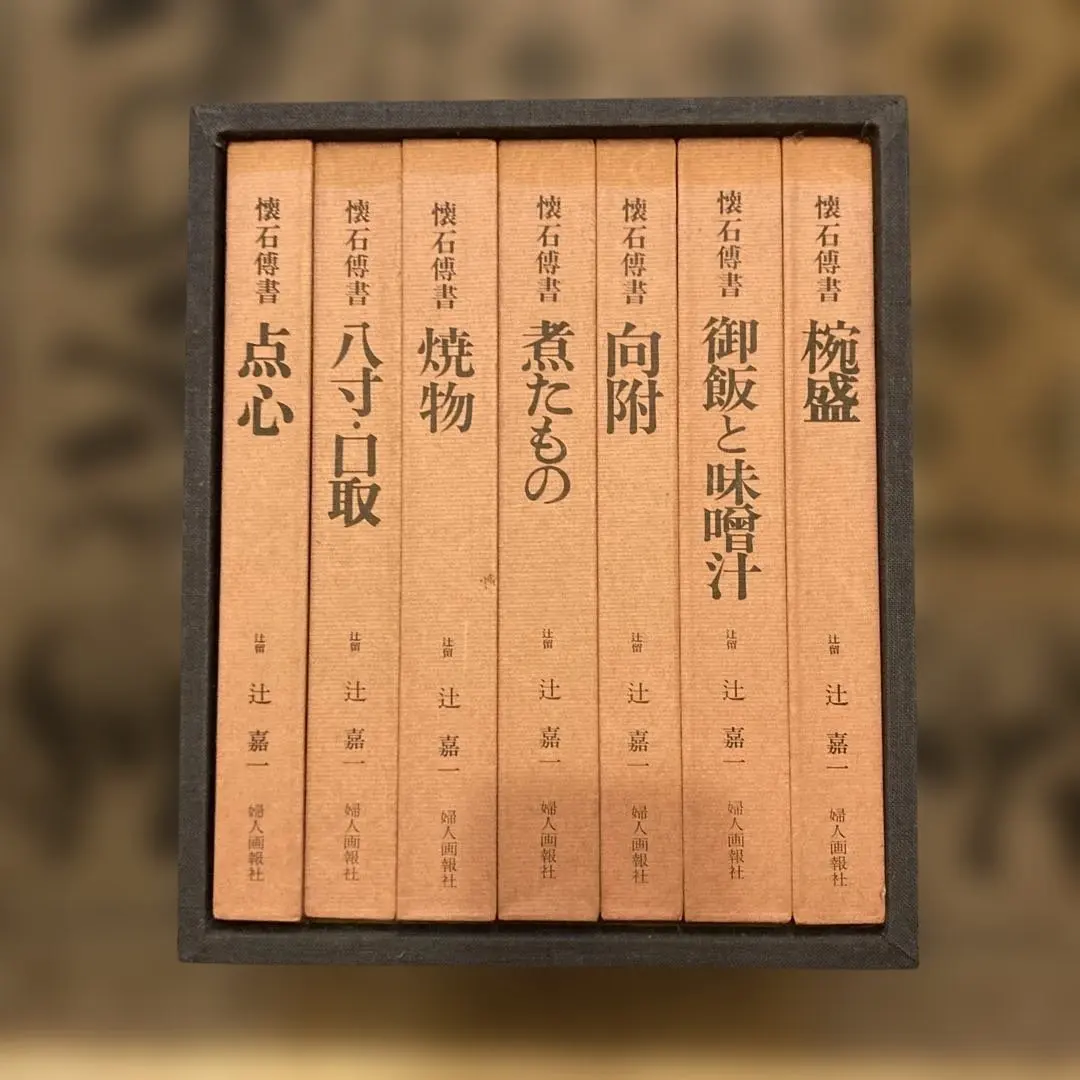 懐石傳書 椀盛 辻留 辻 嘉一 婦人画報社
懐石傳書 御飯と味噌汁 辻留 辻 嘉一 婦人画報社
懐石傳書 向附 辻留 辻 嘉一 婦人画報社
懐石傳書 煮たもの 辻留 辻 嘉一 婦人画報社
懐石傳書 焼物 辻留 辻 嘉一 婦人画報社
懐石傳書 八寸・口取 辻留 辻 嘉一 婦人画報社
懐石傳書 点心 辻留 辻 嘉一 婦人画報社